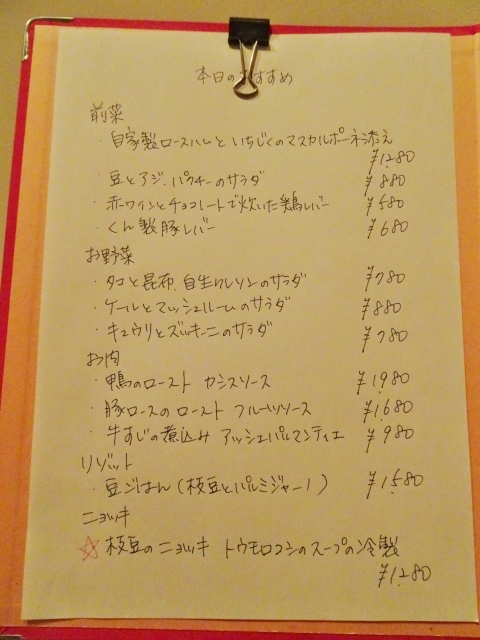 本日のおすすめ
前菜
・自家製ロースハムといちじくのマスカルポーネ添え
¥1,280
・豆とアジ、パクチーのサラダ ¥880
・赤ワインとチョコレートで炊いた鶏レバー ¥580
・くん製豚レバー ¥680
お野菜
・タコと昆布、自生クレソンのサラダ ¥780
・ケールとマッシュルームのサラダ ¥880
・キュウリとズッキーニのサラダ ¥780
お肉
・鴨のロースト カシスソース ¥1,980
・豚ロースのロースト フルーツソース ¥1,680
・牛すじの煮込み アッシェパルマンティエ ¥980
リゾット
・豆ごはん(枝豆とパルミジャーノ) ¥1,580
ニョッキ
☆枝豆のニョッキ トウモロコシのスープの冷製
¥1,280